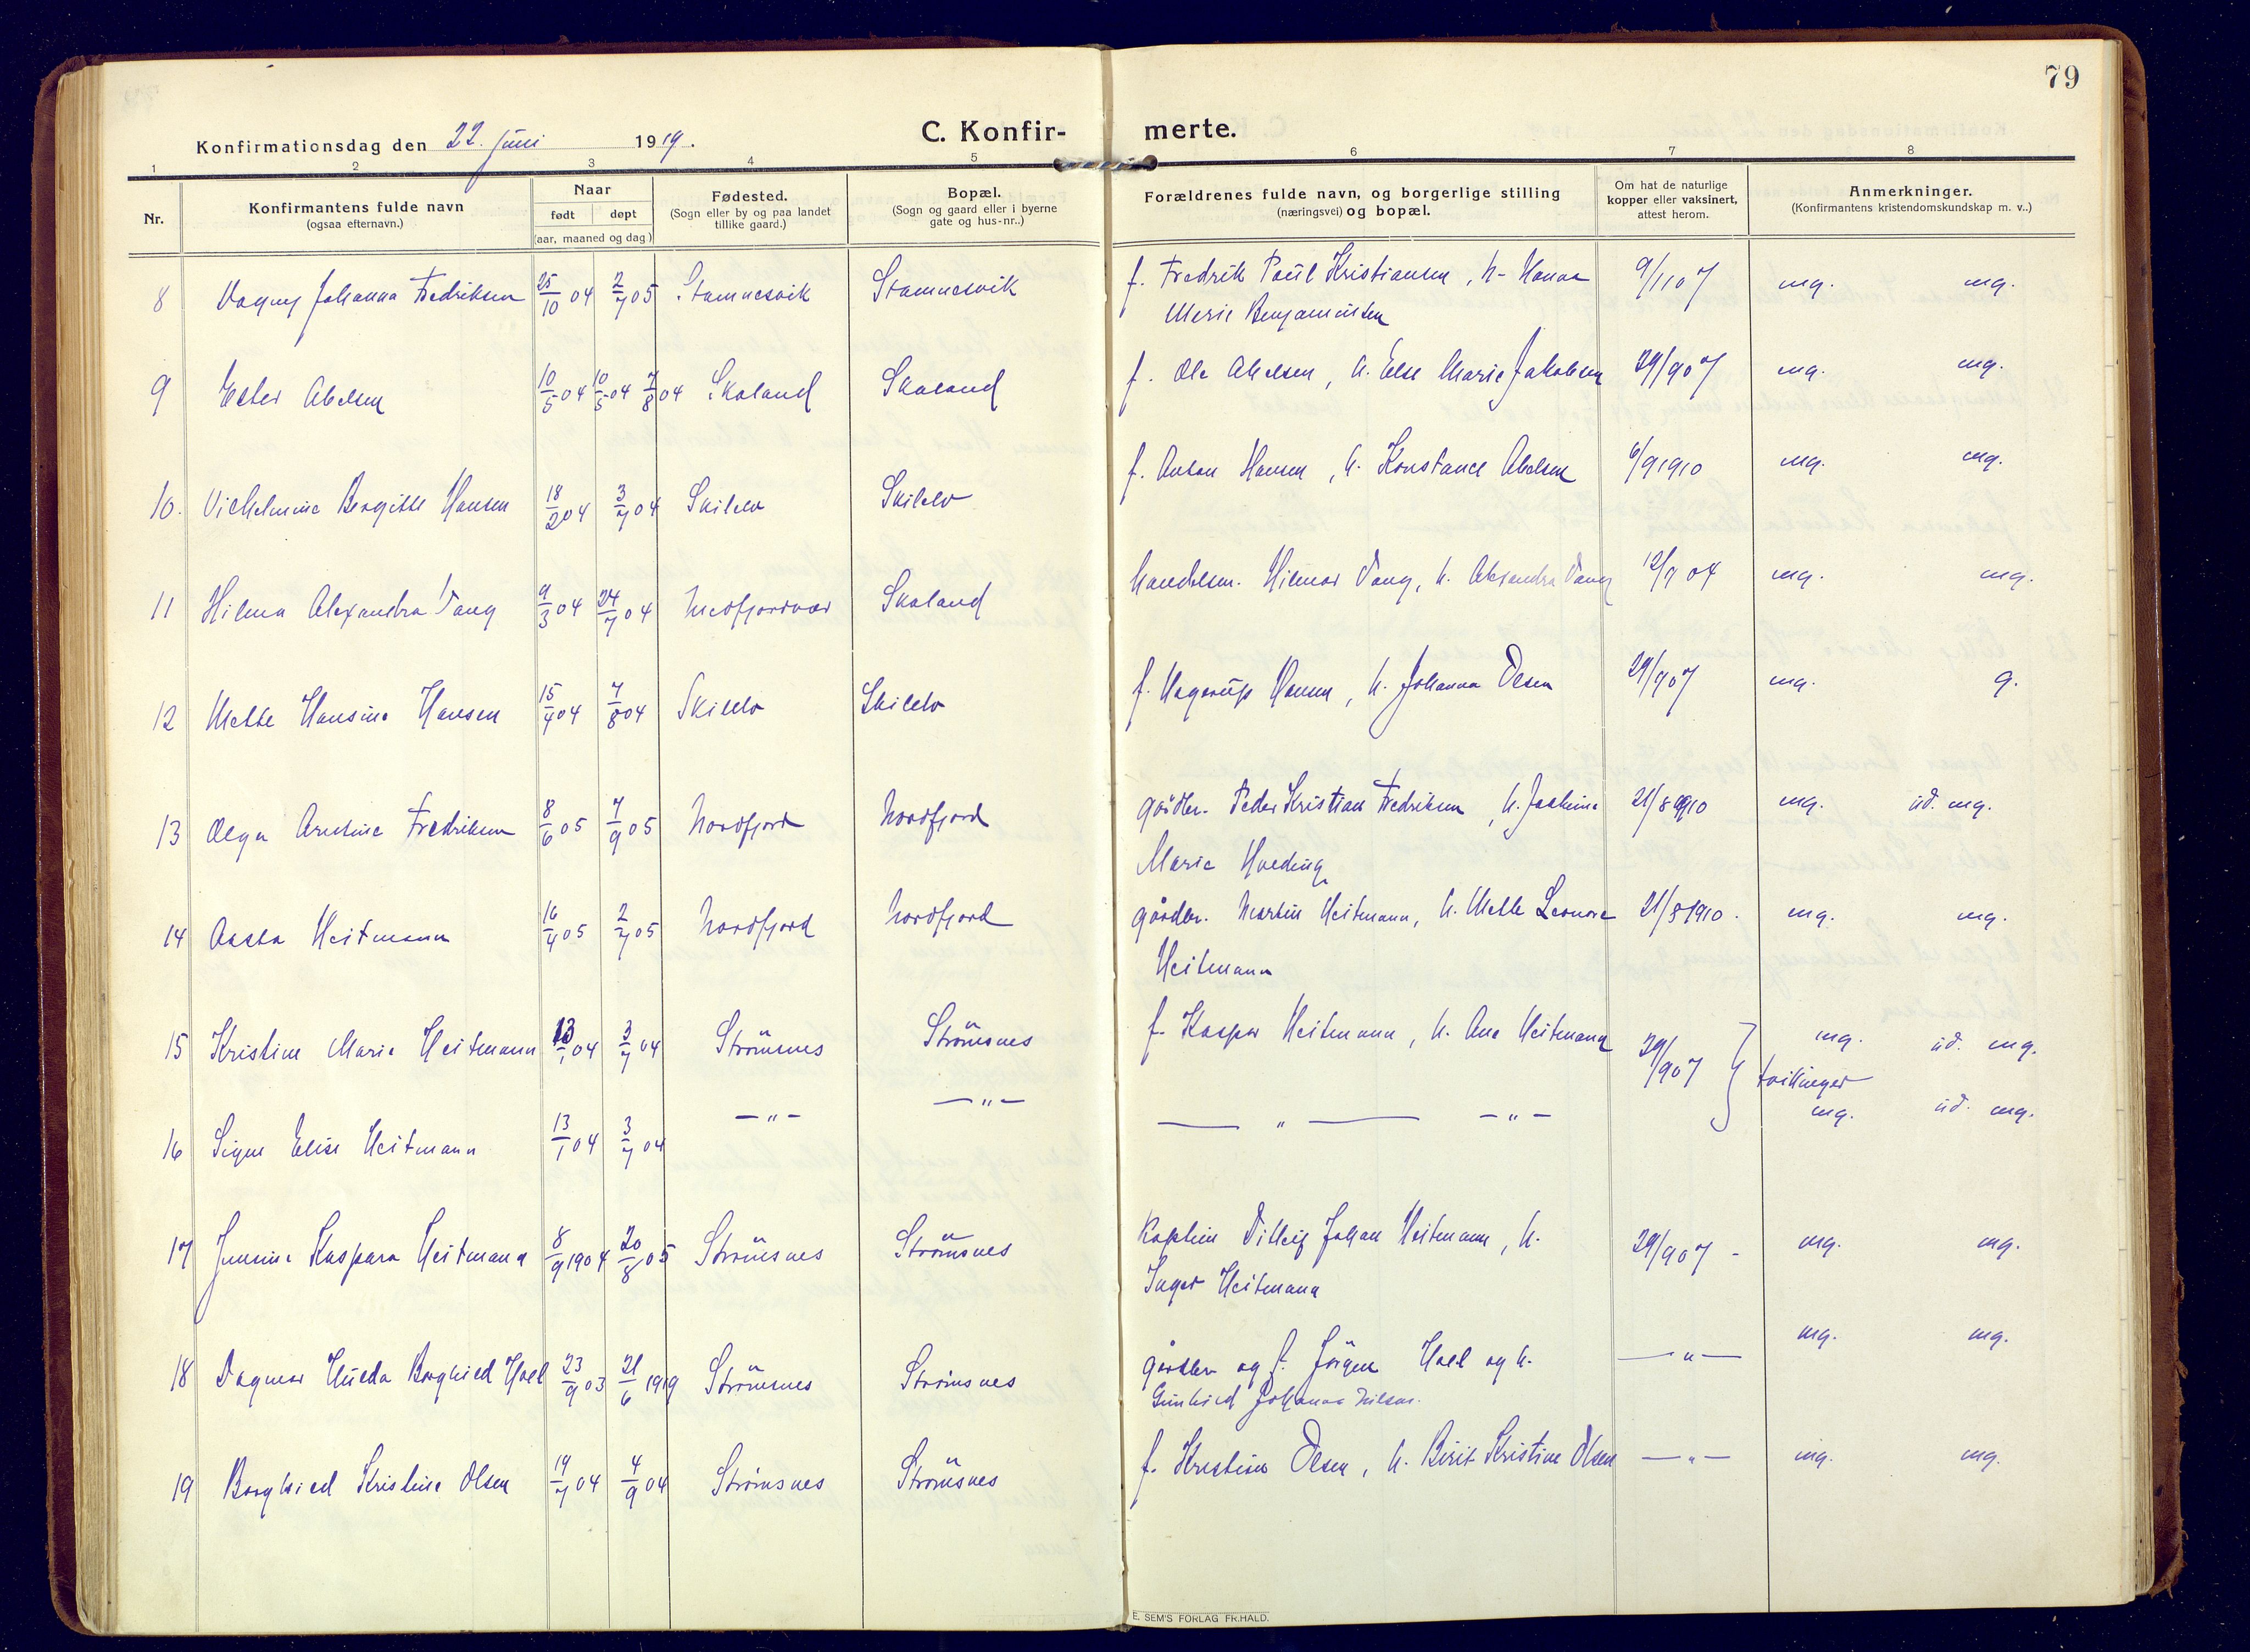 79
Konfirmationsdag den 22. juni 1919.
C. Konfir-
merte.
1 2 3 4 5 6 7 8
Nr.
Konfirmantens fulde navn
(ogsaa efternavn.)
Naar
født døpt
(aar, maaned og dag)
Fødested.
(Sogn eller by og paa landet
tillike gaard.)
Bopæl.
(Sogn og gaard eller i byerne
gate og hus-nr..)
Forældrenes fulde navn, og borgerlige stilling
(næringsvei) og bopæl.
Om hat de naturlige
kopper eller vaksinert,
attest herom.
Anmerkninger.
(Konfirmantens kristendomskundskap m. v..)
8 Dagny Johanna Fredriksen 25/10 04 2/7 05 Stamnesvik Stamnesvik f. Fredrik Paul Kristiansen, h. Hanna 9/1107 mg. mg.
Marie Benjaminsen
9 Ester Abelsen 10/5 04 10/5 04 7/8 04 Skaland Skaland f. Ole Abelsen, h. Else Marie Jakobsen 29/907 mg. mg.
10. Vilhelmine Bergitte Hansen 18/2 04 3/7 04 Skilelv Skilelv f. Anton Hansen, h. Konstance Abelsen 6/91910 mg. mg.
11 Hilma Alexandra Tang 9/3 04 24/7 04 Medfjordvær Skaland handelsm. Hilmar Tang, h. Aleksandra Tang 12/9 04 mg. mg.
12 Mette Hansine Hansen 15/4 04 7/8 04 Skilelv Skilelv f. Hagerup Hansen, h. Johanna Olsen 29/907 mg. g.
13 Olga Arntine Fredriksen 8/6 05 7/9 05 Nordfjord Nordfjord gårdbr. Peder Kristian Fredriksen, h. Joakine 21/81910 mg. ud. mg.
Marie Hveding
14 Aasta Heitmann 16/4 05 2/7 05 Nordfjord Nordfjord gårdbr. Martin Heitmann, h. Mette Leonore 21/81910. mg. mg.
Heitmann
15 Kristine Marie Heitmann 13/1 04 3/7 04 Strömsnes Strömsnes f. Kaspar Heitmann, h. Ane Heitmann 29/907 } mg. ud. mg.
tvillinger
16 Signe Elise Heitmann 13/1 04 3/7 04 —"— —"— — " — —"— mg. ud. mg.
17 Jensine Kaspara Heitmann 8/9 1904 20/8 05 Strömsnes Strömsnes Kaptein Johan Heitmann, h. 29/907 - mg. mg.
Inger Heitmann
18 Dagmar Hulda Borghild Hoel 23/9 03 21/6 1919 Strömsnes Strömsnes gårdbr og f. Jörgen Hoel og h. —"— mg. mg.
Gunhild Johanna Nilsen.
19 Borghild Kristine Olsen 14/7 04 4/9 04 Strömsnes Strömsnes f. Kristian Olsen, h. Berit Kristine Olsen —"— mg. mg.
E. SEM'S FORLAG FR.HALD.